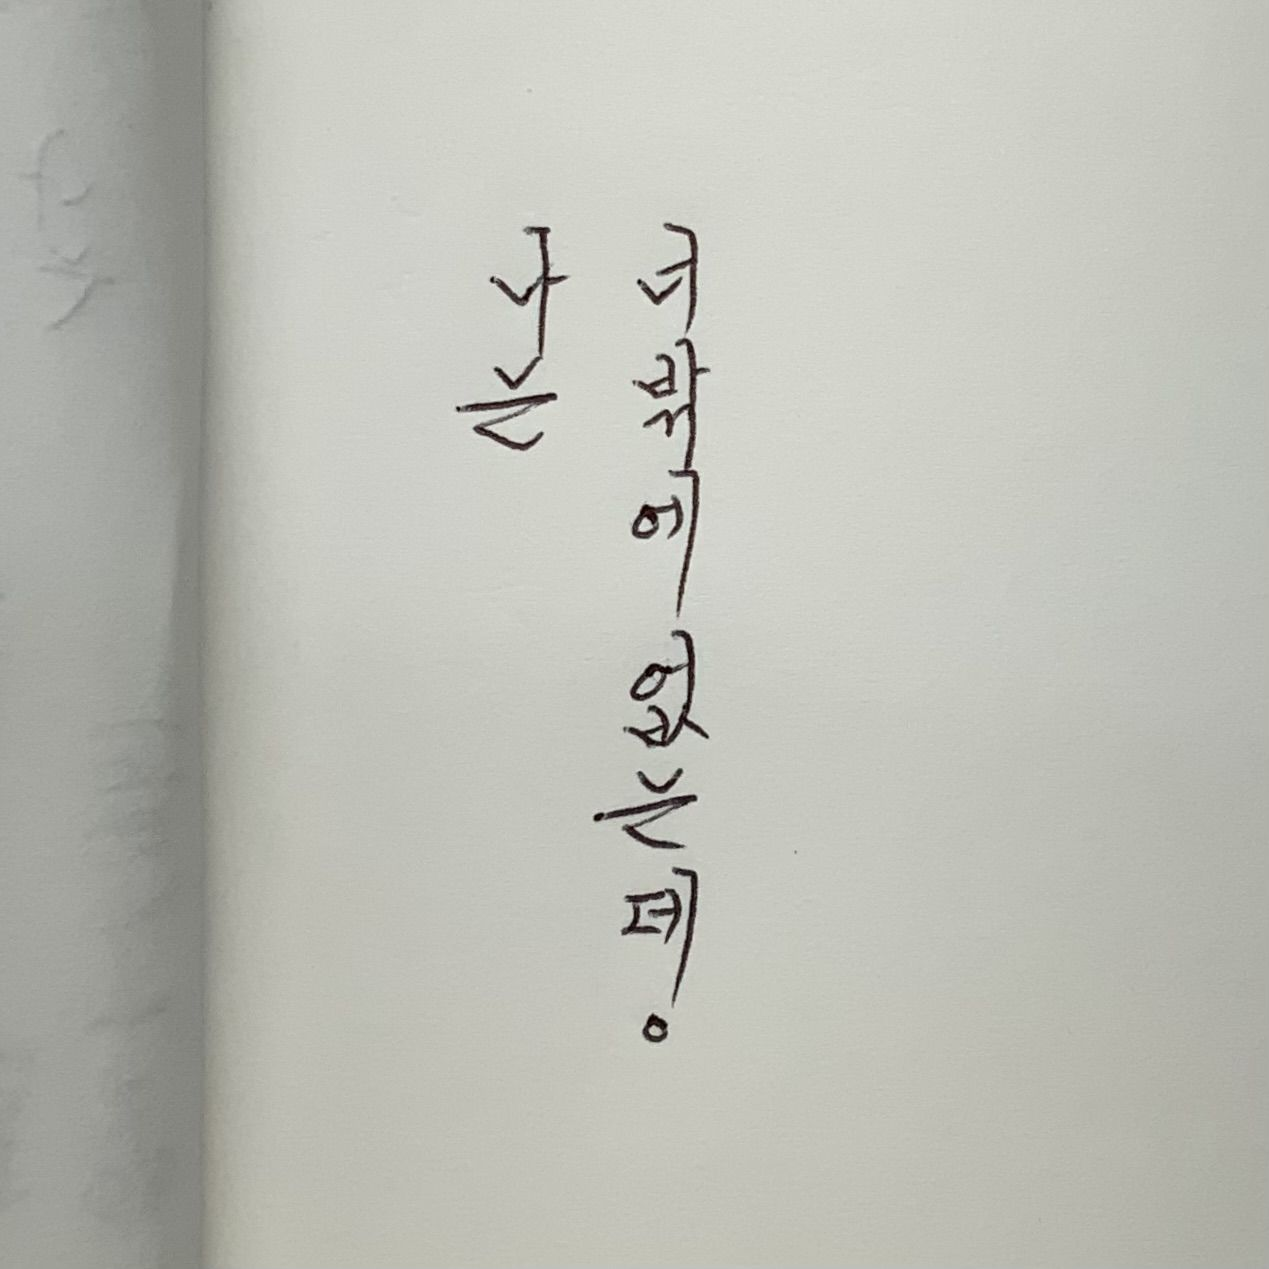 나는
너밖에 없는데。